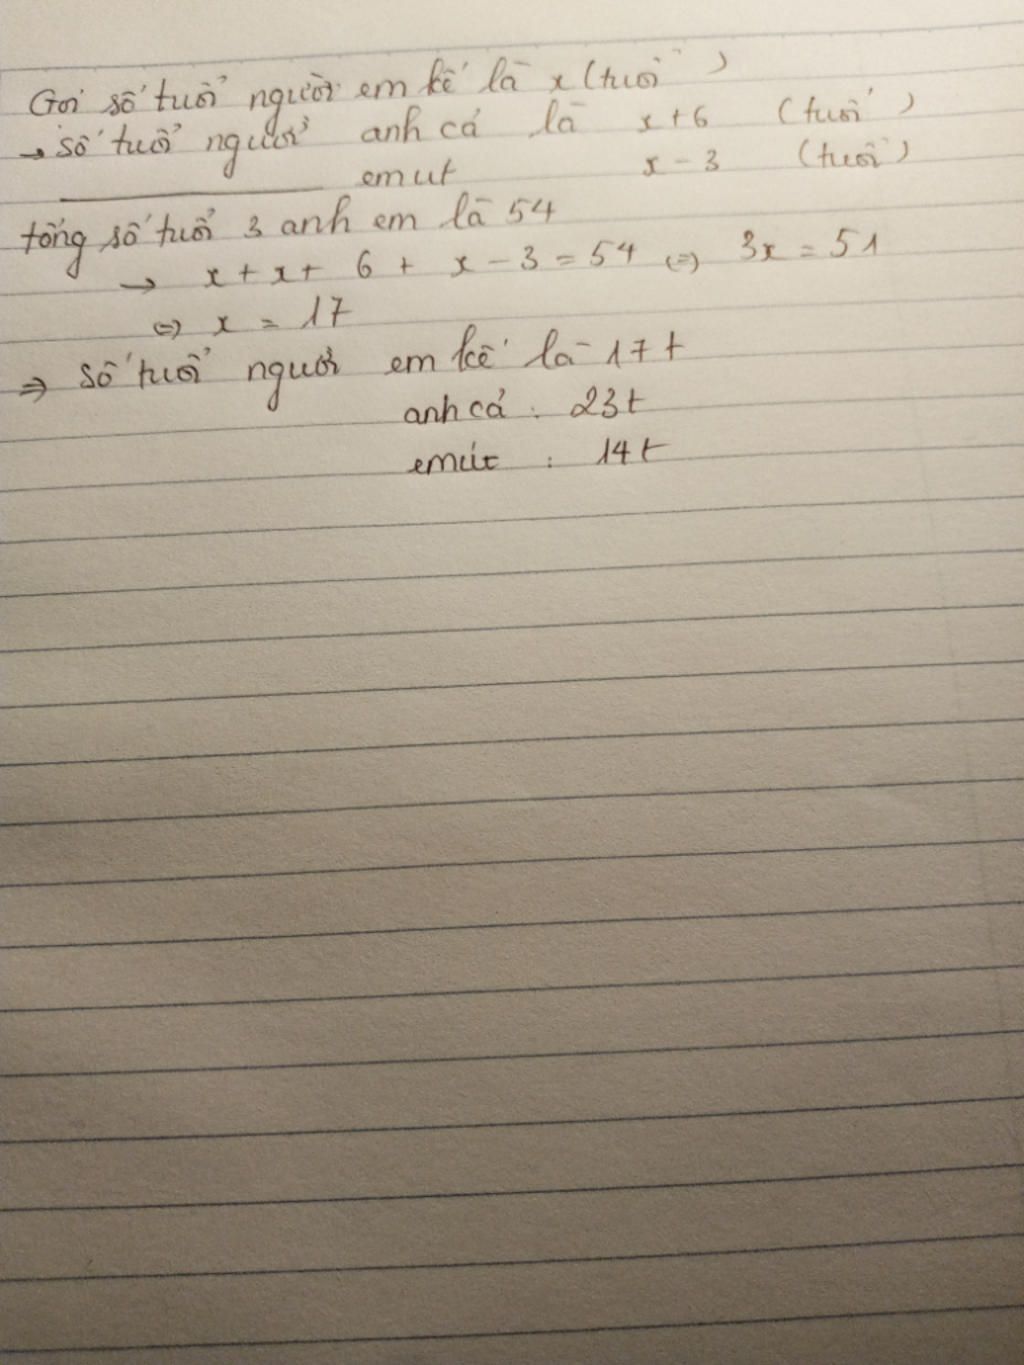 Gọi số tuổi người em kế là x (tuổi)
→ số tuổi người anh cả là x+6 (tuổi)
em út x - 3 (tuổi)
tổng số tuổi 3 anh em là 54
→ x + x + 6 + x - 3 = 54 (=) 3x = 51
(=) x = 17
⇒ số tuổi người em kế là 17t
anh cả : 23t
em út : 14t